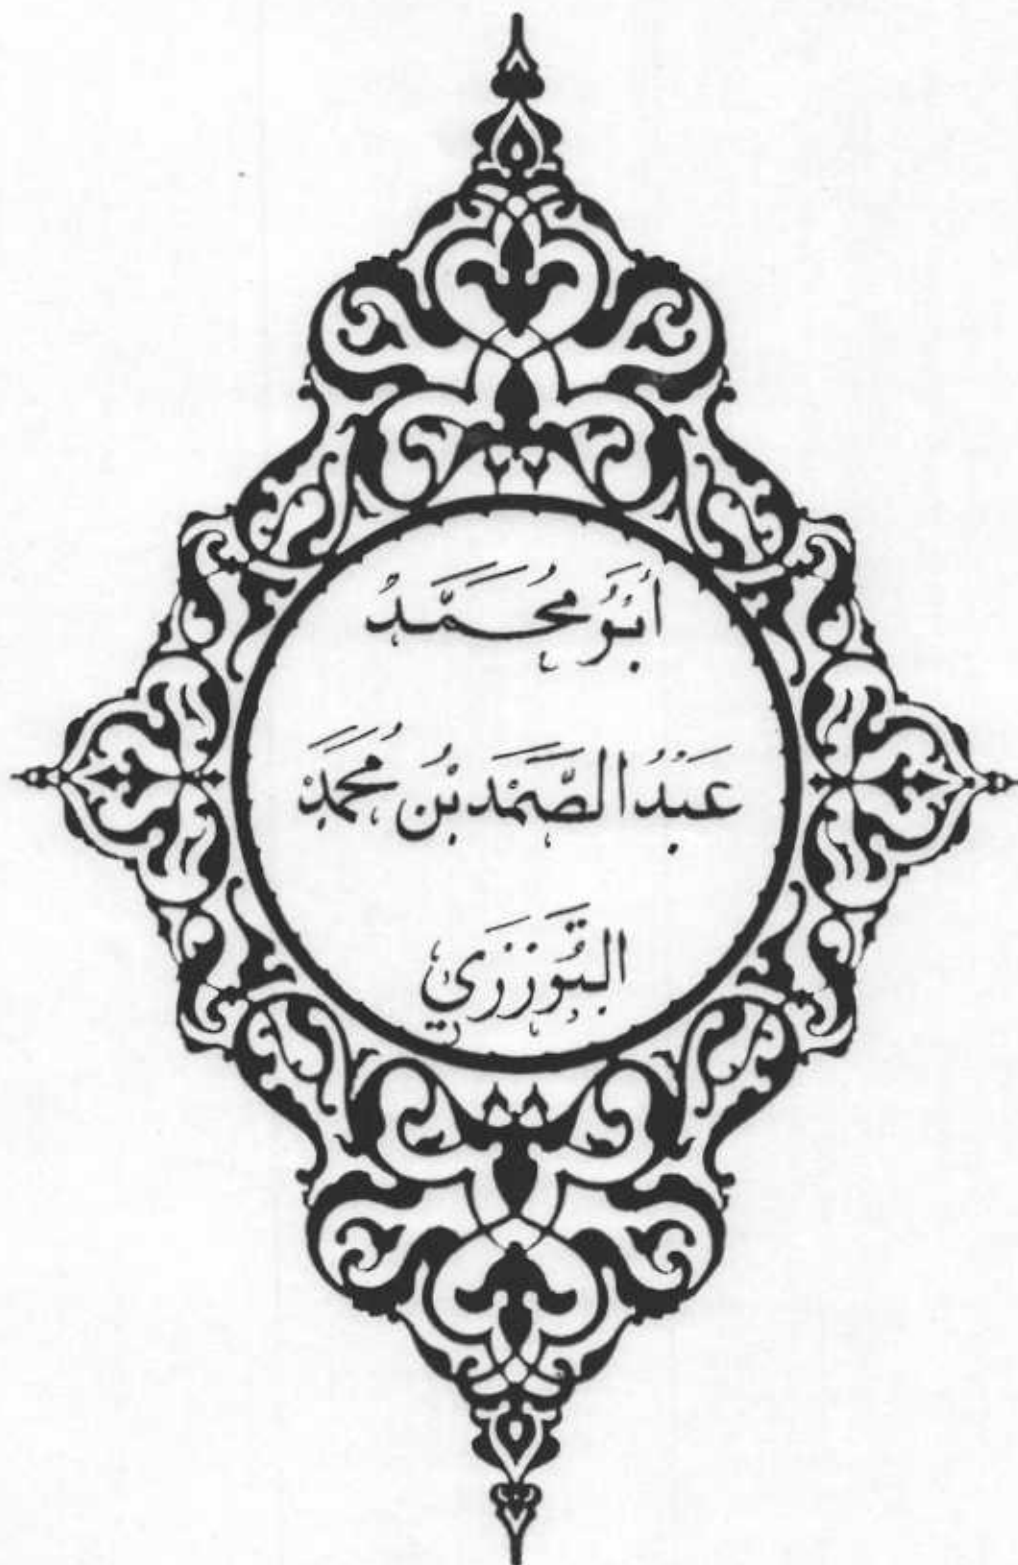 أَبُو مُحَمَّدُ
عَبْدُ الصَّمَد بْنُ مُحَمَّدْ
التَوْزَرِي